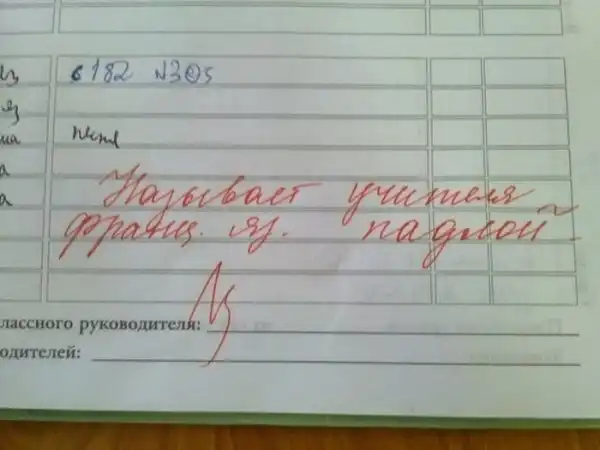 с 182 №3 05
песня
Называет учителя
франц. яз. падлой
лассного руководителя:
одителей: